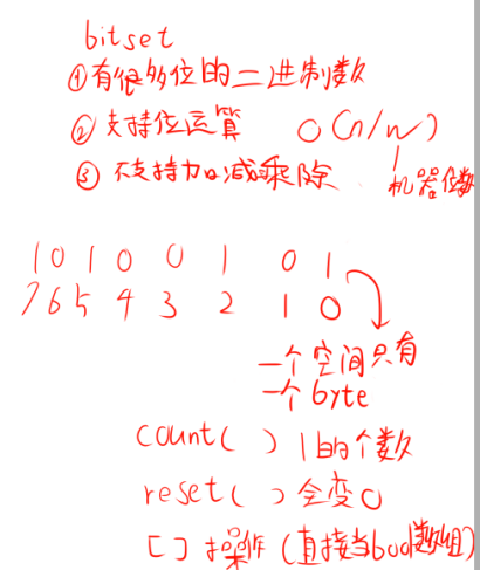 bitset
①有很多位的二进制数
②支持位运算 O(n/w)
③不支持加减乘除 机器位数
1 0 1 0 0 1 0 1
7 6 5 4 3 2 1 0
一个空间只有
一个byte
count( ) 1的个数
reset( ) 全变0
[ ] 操作(直接当bool数组)